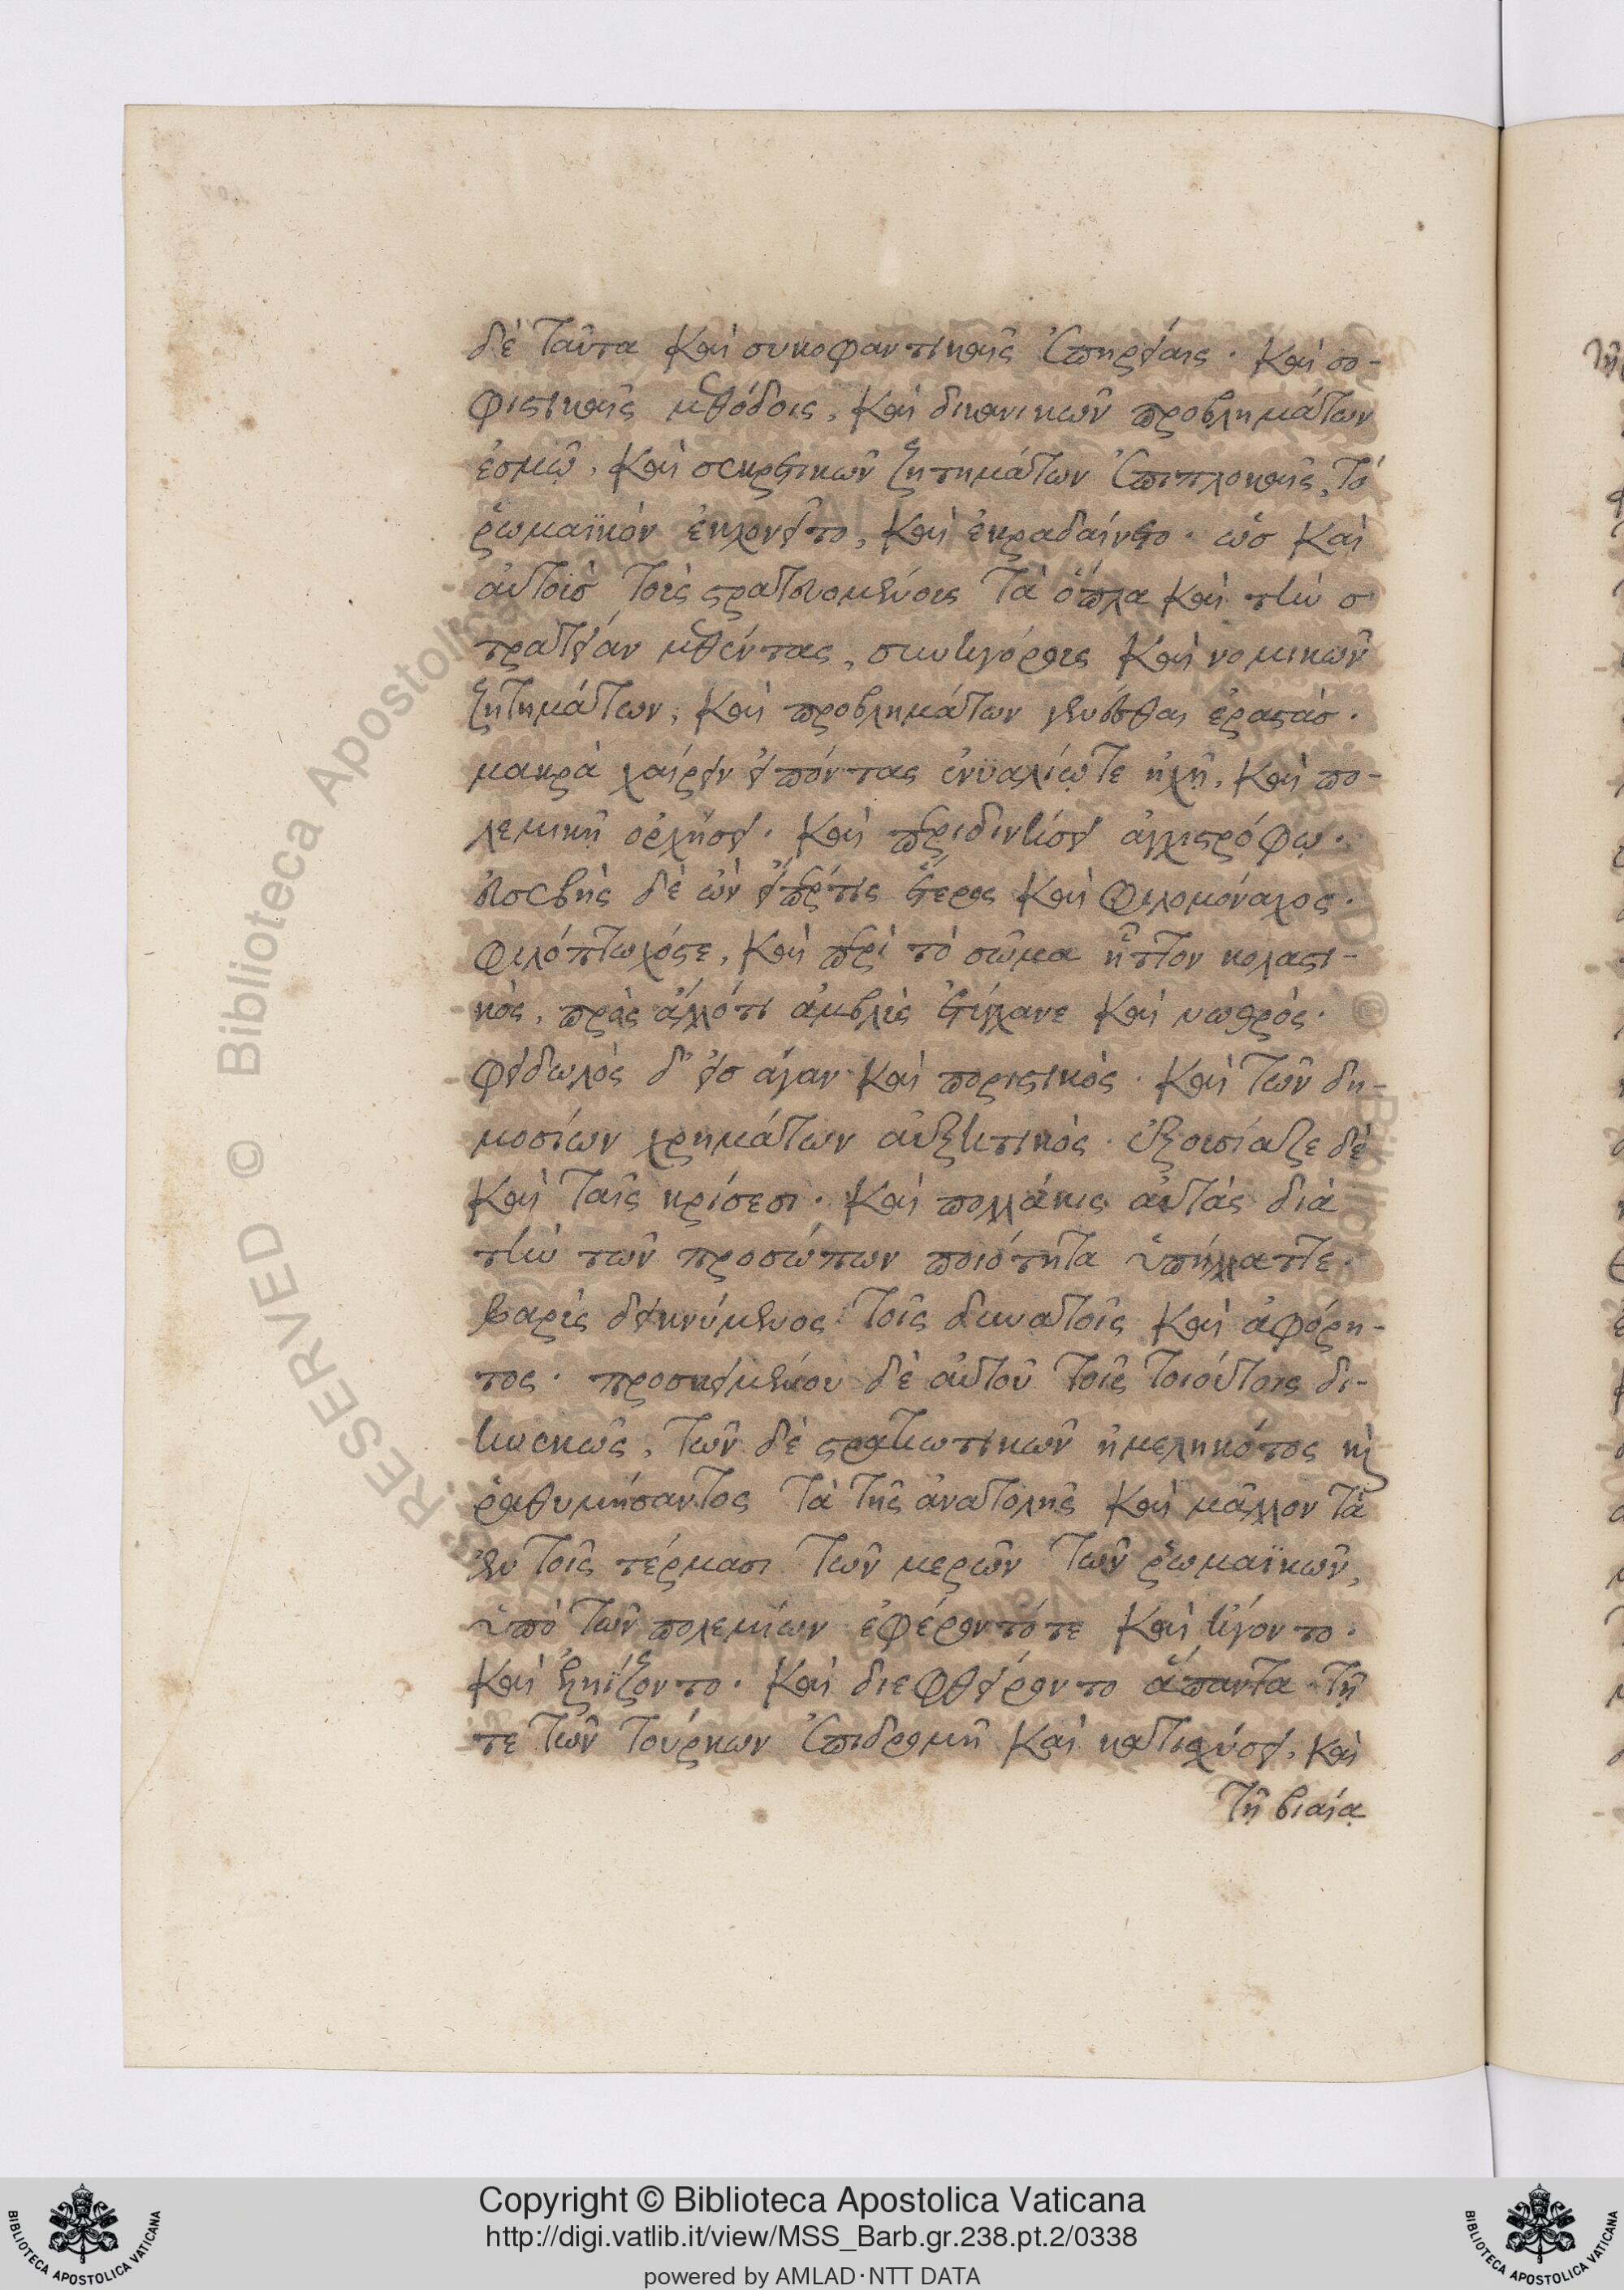 δὲ ταῦτα καὶ συκοφαντικαῖς ἐπηρείαις· καὶ σο-
φιστικαῖς μεθόδοις, καὶ δικανικῶν προβλημάτων
ἑσμῷ, καὶ σεκρετικῶν ζητημάτων ἐπιπλοκαῖς, τὸ
ῥωμαϊκὸν ἐκλονεῖτο, καὶ ἐκραδαίνετο· ὡσ καὶ
αὐτοῖσ τοῖς στρατευομένοις τὰ ὅπλα καὶ τὴν σ
τρατείαν μεθέντας, συνηγόροις καὶ νομικῶν
ζητημάτων, καὶ προβλημάτων γενέσθαι ἐραστάσ·
μακρὰ χαίρειν εἰπόντας ἐνυαλίῳ τε ἠχῇ, καὶ πο-
λεμικῇ ὀρχήσει· καὶ περιδινήσει ἀγχιστρόφῳ·
εὐσεβὴς δὲ ὢν εἴπερ τις ἕτερος καὶ φιλομόναχος·
φιλόπτωχόστε, καὶ περὶ τὸ σῶμα ἧττον κολαστι-
κὸς, πρὸς ἀλλότι ἀμβλὺς ἐτύγχανε καὶ νωθρός·
φειδωλὸς δ' εἰσ ἄγαν καὶ ποριστικὸς· καὶ τῶν δη-
μοσίων χρημάτων αὐξητικὸς· ἐξουσίαζε δὲ
καὶ ταῖς κρίσεσι· καὶ πολλάκις αὐτὰς διὰ
τὴν τῶν προσώπων ποιότητα ὑπήλλαττε·
βαρὺς δεικνύμενος τοῖς δυνατοῖς καὶ ἀφόρη-
τος· προσκειμένου δὲ αὐτοῦ τοῖς τοιούτοις δι-
ηνεκῶς, τῶν δὲ στρατιωτικῶν ἠμεληκότος κὶ
ῥαθυμήσαντος τὰ τῆς ἀνατολῆς καὶ μᾶλλον τὰ
ἐν τοῖς τέρμασι τῶν μερῶν τῶν ῥωμαϊκῶν,
ὑπὸ τῶν πολεμίων ἐφέροντό τε καὶ ἤγοντο·
καὶ ἐληίζοντο· καὶ διεφθείροντο ἅπαντα τῇ
τε τῶν τούρκων ἐπιδρομῇ καὶ κατισχύσει, καὶ
τῇ βιαίᾳ
Copyright © Biblioteca Apostolica Vaticana
http://digi.vatlib.it/view/MSS_Barb.gr.238.pt.2/0338
powered by AMLAD·NTT DATA